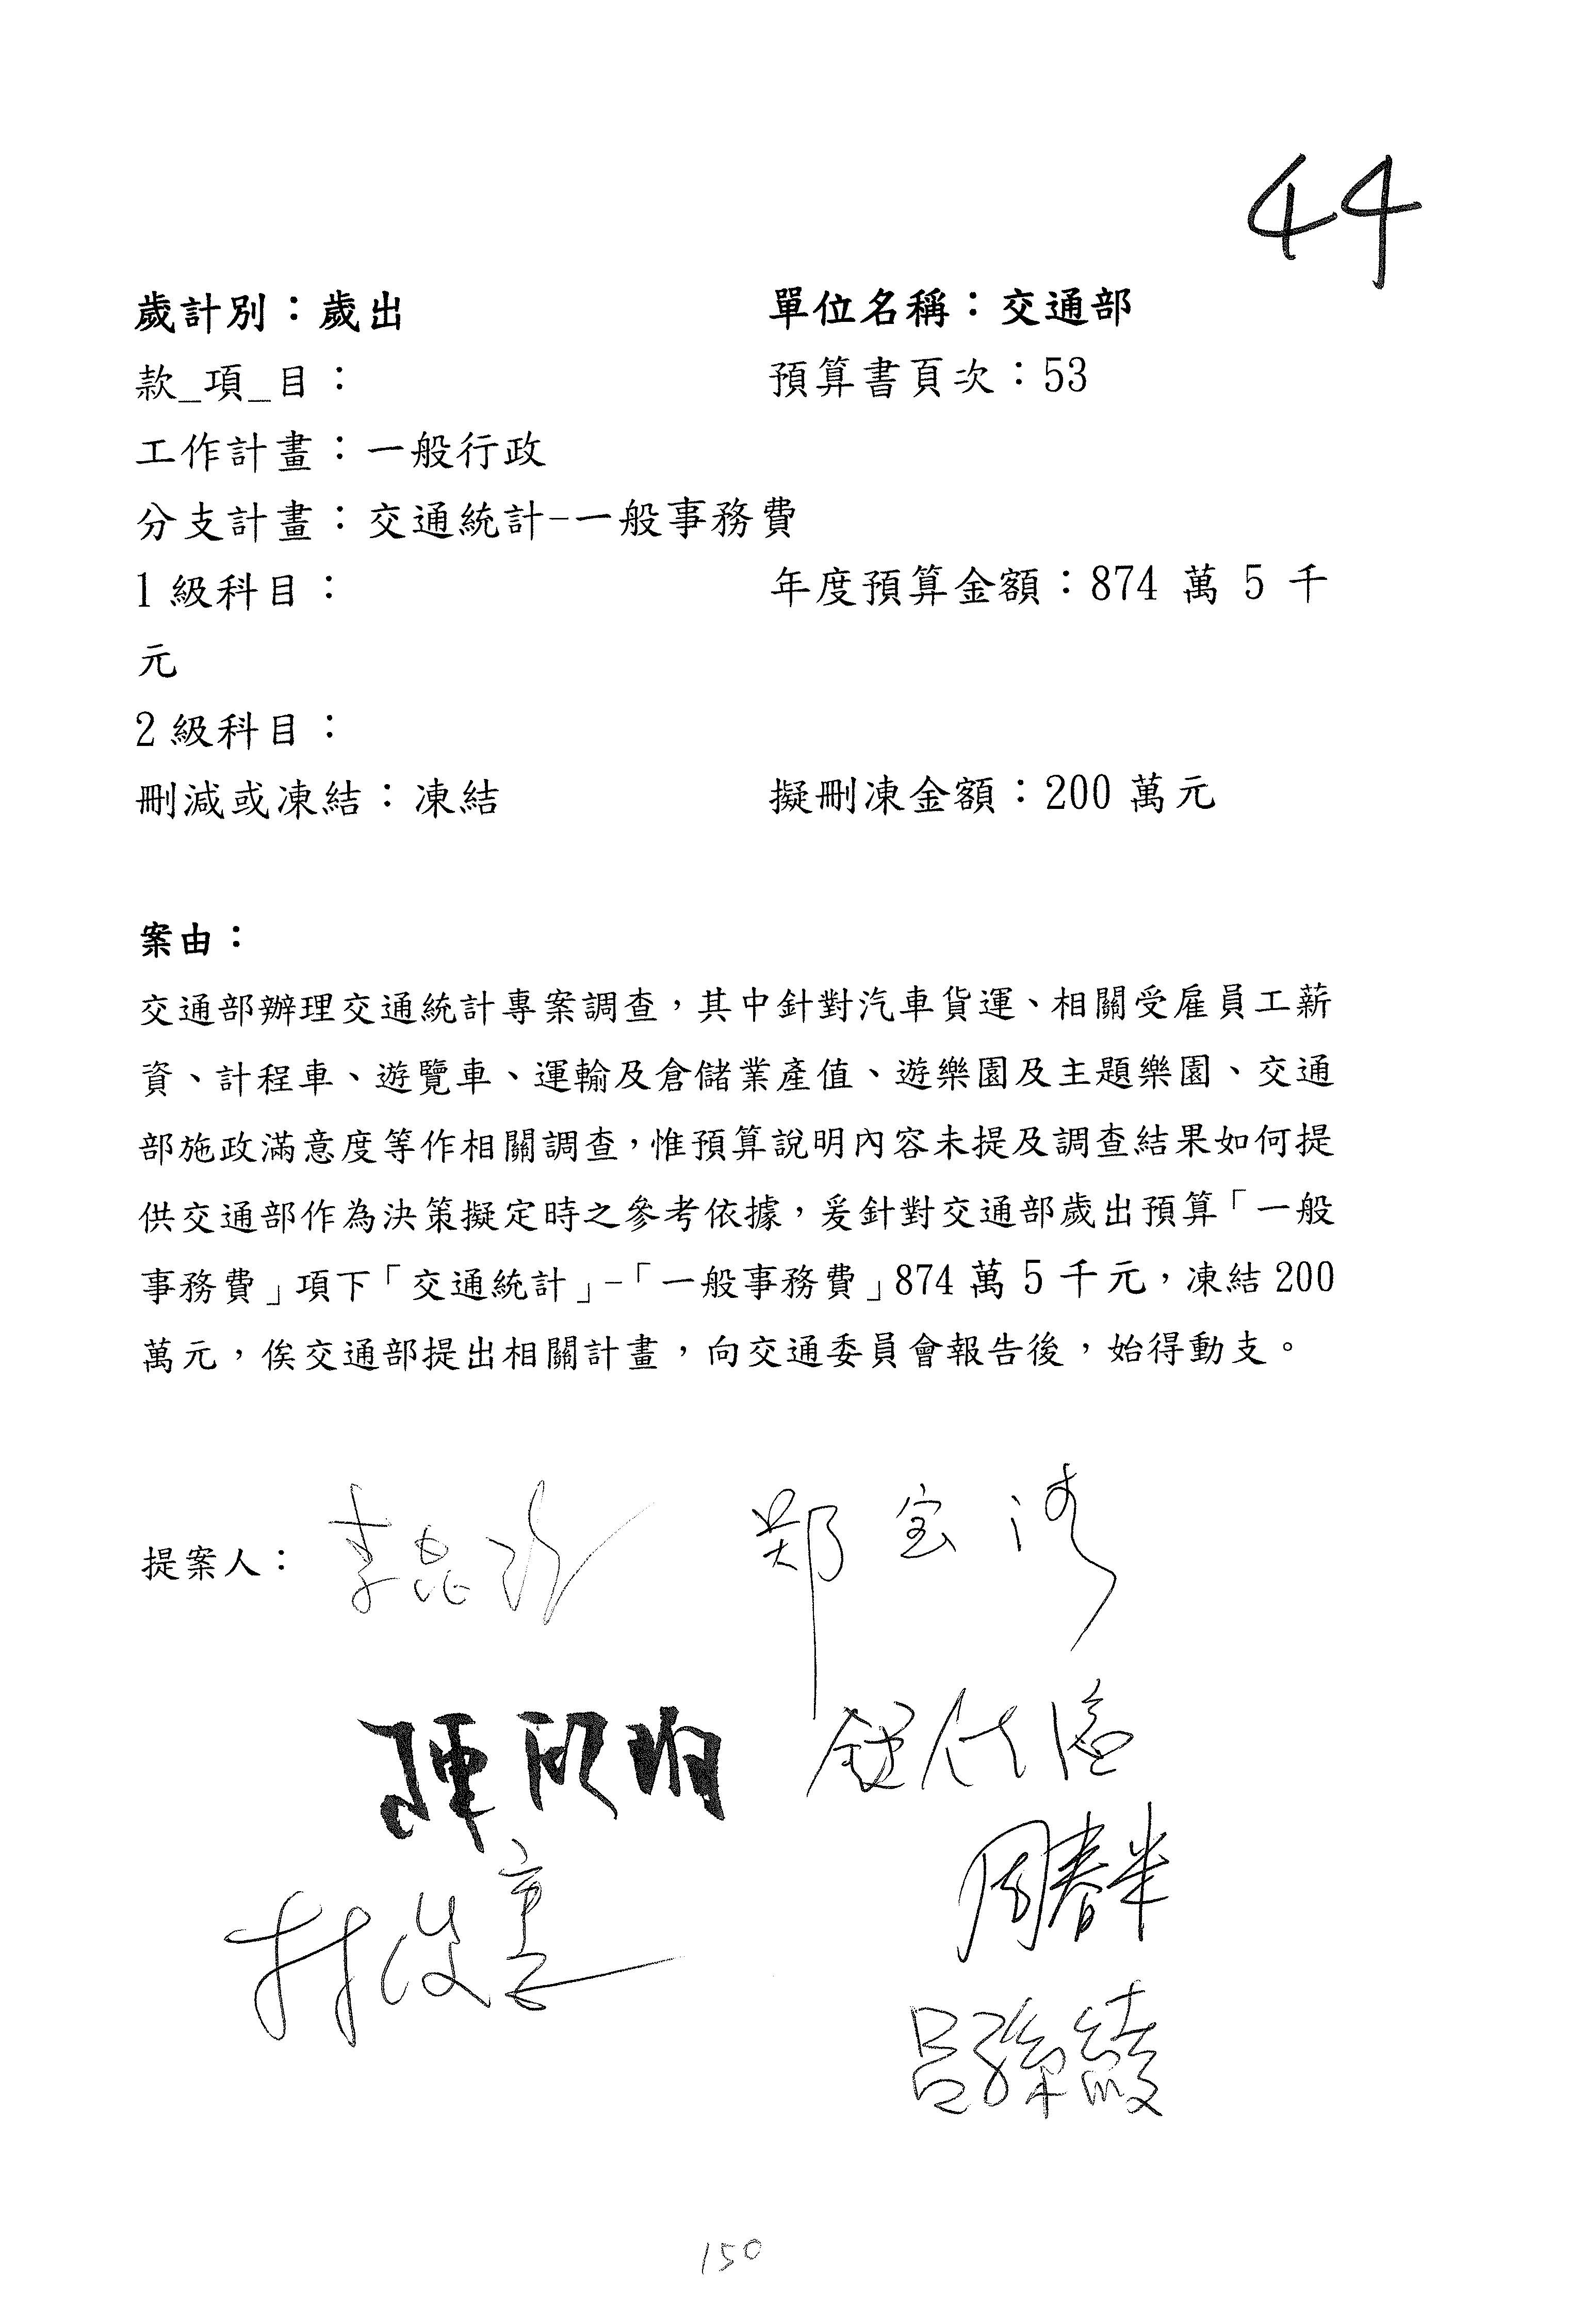 44
歲計別：歲出 單位名稱：交通部
款_項_目： 預算書頁次：53
工作計畫：一般行政
分支計畫：交通統計-一般事務費
1 級科目： 年度預算金額：874 萬 5 千
元
2 級科目：
刪減或凍結：凍結 擬刪凍金額：200 萬元
案由：
交通部辦理交通統計專案調查，其中針對汽車貨運、相關受雇員工薪
資、計程車、遊覽車、運輸及倉儲業產值、遊樂園及主題樂園、交通
部施政滿意度等作相關調查，惟預算說明內容未提及調查結果如何提
供交通部作為決策擬定時之參考依據，爰針對交通部歲出預算「一般
事務費」項下「交通統計」-「一般事務費」874 萬 5 千元，凍結 200
萬元，俟交通部提出相關計畫，向交通委員會報告後，始得動支。
提案人： 李昆澤 鄭宝清
陳歐珀
林俊憲
周春米
呂孫綾
150